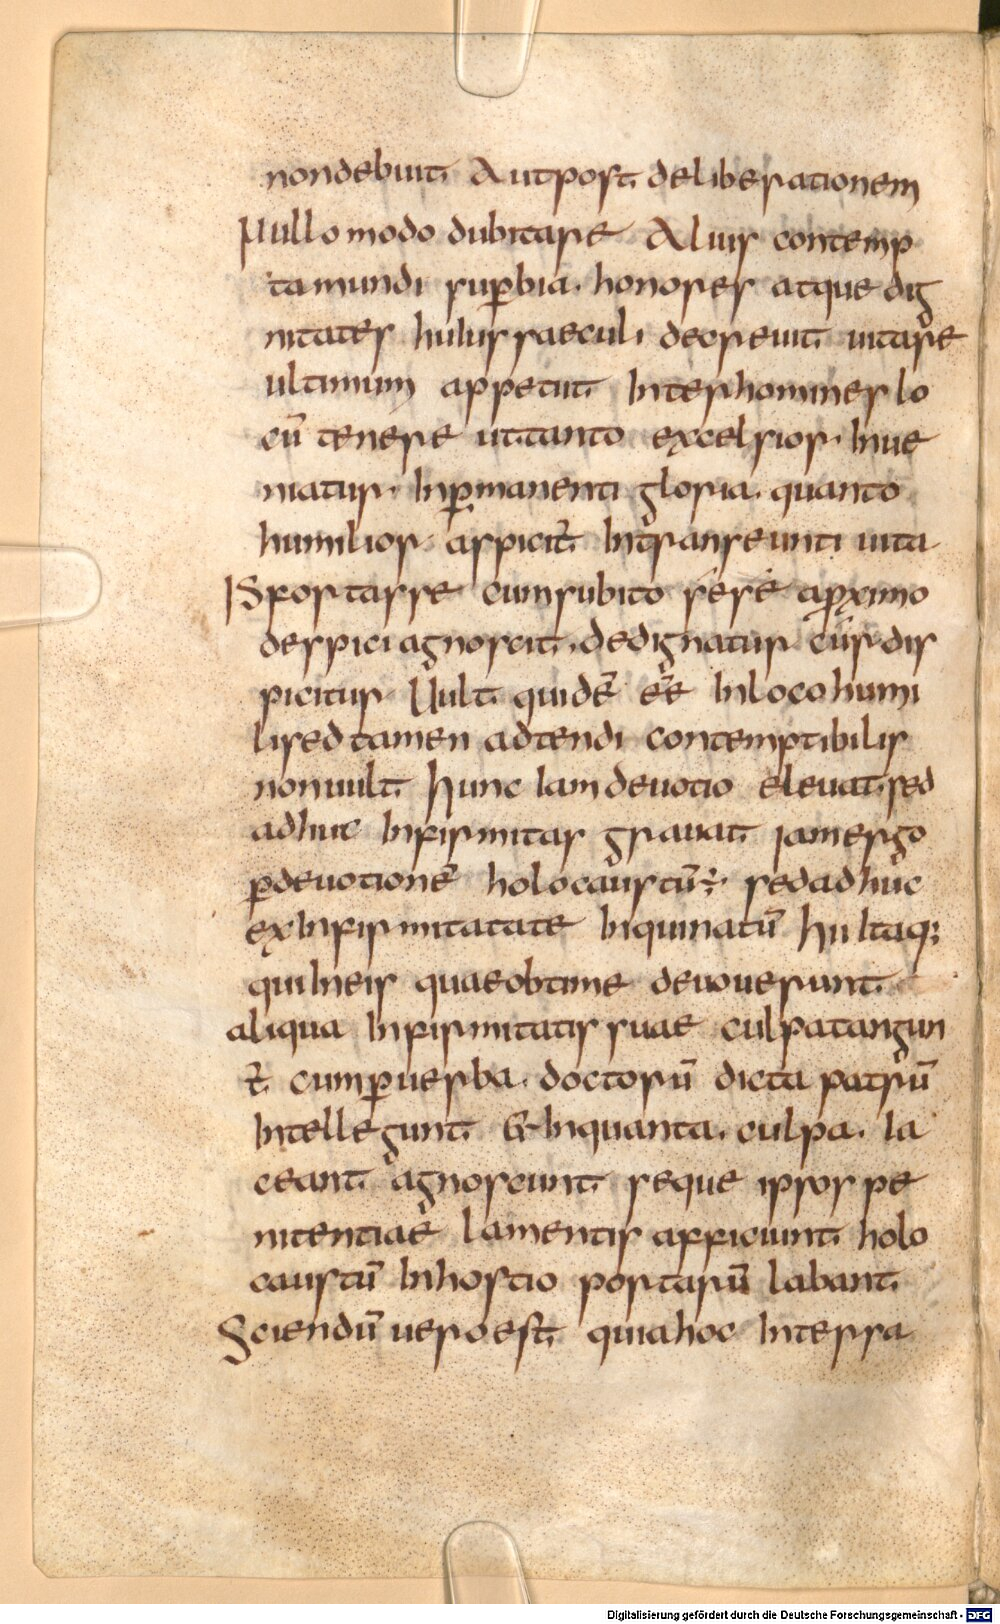 nondebuit Autpost deliberationem
Nullomodo dubitare Aliuis contemp
tamundi superbia. honores atque dig
nitates huiussaeculi decreuit uitare
ultimum appetiit Interhomineslo
cū tenere uttanto excelsior Inue
niatur Inpmanenti gloria. quanto
humilior aspicit̄ Intranseunti uita
ISfortasse cumsubito sese apximo
despiciagnoscit. dedignatur cū̄rdis
picitur Uult quidē eē Inlocohumi
lisedtamen adtendi contemptibilis
nonuult Hunc Iamdeuotio eleuatsed
adhuc Infirmitas grauat Iamergo
pdeuotionē holocaustū ÷ sedadhuc
exInfirmitatate Inquinatū Hultaq;
quiIneis quaeobtime deuouerunt
aliqua Infirmitatissuae culpatangun
t̄ cumpuerba. doctorū dicta patrū
Intellegunt Et Inquanta. culpa. Ia
ceant agnoscunt seque ipsospe
nitentiae Lamentis afficiunt holo
caustū Inhostio portarū labant
Sciendū ueroest quiahoc Interra
Digitalisierung gefördert durch die Deutsche Forschungsgemeinschaft - DFG